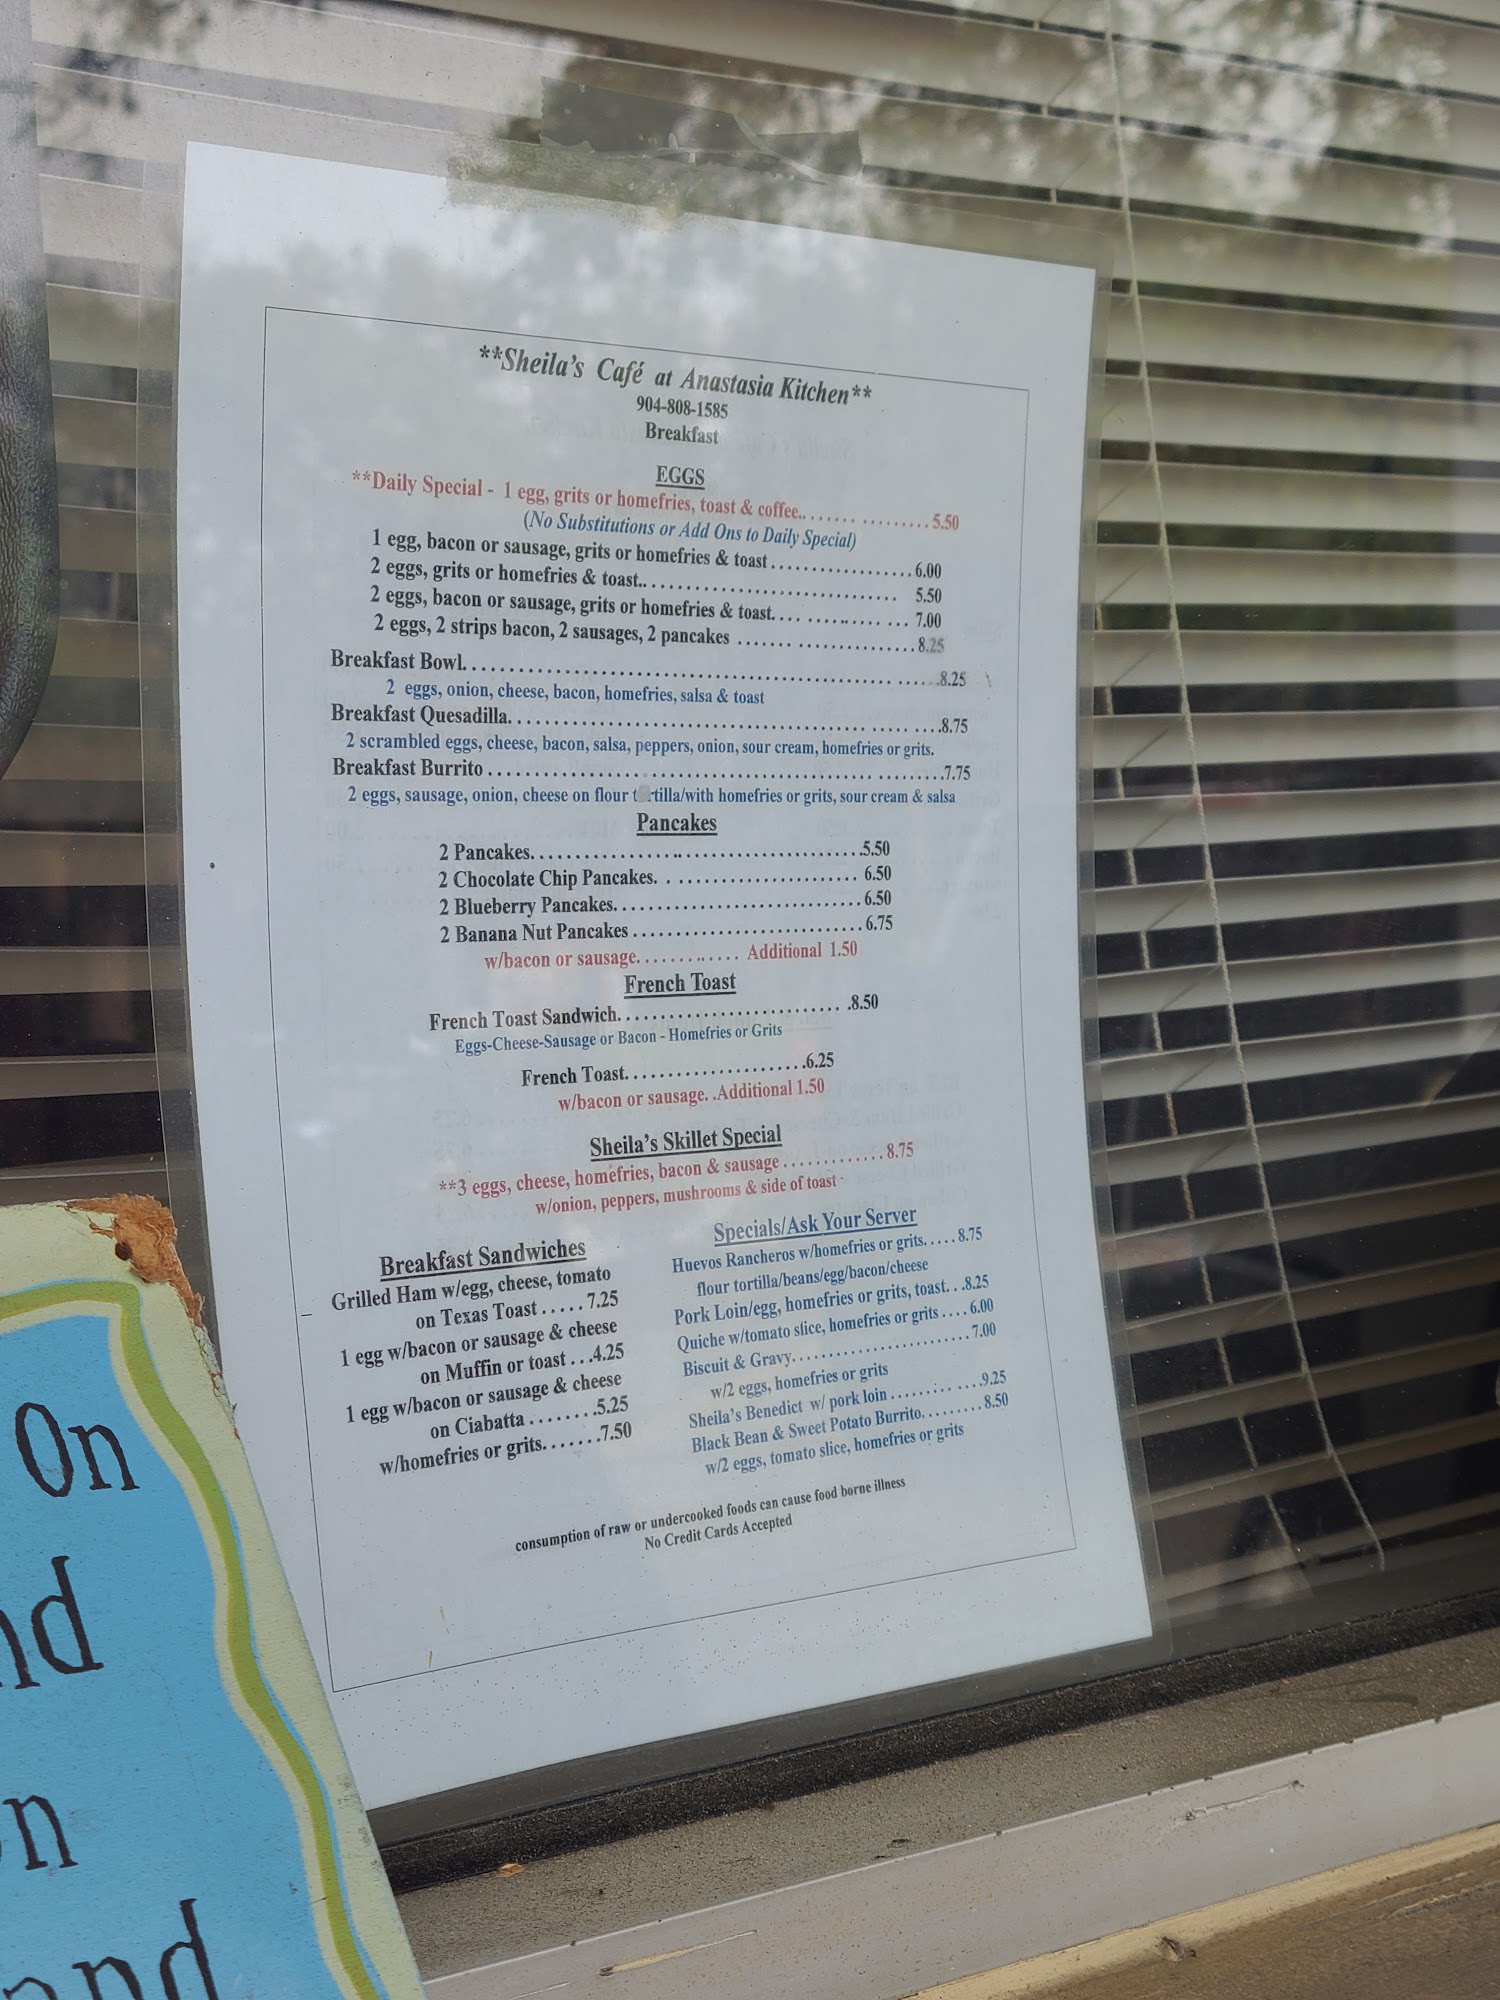 **Sheila's Café at Anastasia Kitchen**
904-808-1585
Breakfast
EGGS
**Daily Special - 1 egg, grits or homefries, toast & coffee.. . . . . . . . . . . . . . . . . 5.50
(No Substitutions or Add Ons to Daily Special)
1 egg, bacon or sausage, grits or homefries & toast . . . . . . . . . . . . . . . . . . 6.00
2 eggs, grits or homefries & toast.. . . . . . . . . . . . . . . . . . . . . . . . . . . . . . . 5.50
2 eggs, bacon or sausage, grits or homefries & toast. . . . . . . . . . . . . . . . 7.00
2 eggs, 2 strips bacon, 2 sausages, 2 pancakes . . . . . . . . . . . . . . . . . . . . . . 8.25
Breakfast Bowl. . . . . . . . . . . . . . . . . . . . . . . . . . . . . . . . . . . . . . . . . . . . . .8.25
2 eggs, onion, cheese, bacon, homefries, salsa & toast
Breakfast Quesadilla. . . . . . . . . . . . . . . . . . . . . . . . . . . . . . . . . . . . . . . . . .8.75
2 scrambled eggs, cheese, bacon, salsa, peppers, onion, sour cream, homefries or grits.
Breakfast Burrito . . . . . . . . . . . . . . . . . . . . . . . . . . . . . . . . . . . . . . . . . . . .7.75
2 eggs, sausage, onion, cheese on flour t rtilla/with homefries or grits, sour cream & salsa
Pancakes
2 Pancakes. . . . . . . . . . . . . . . . . . . . . . . . . . . . . . . . . . . . .5.50
2 Chocolate Chip Pancakes. . . . . . . . . . . . . . . . . . . . . . . . 6.50
2 Blueberry Pancakes. . . . . . . . . . . . . . . . . . . . . . . . . . . . 6.50
2 Banana Nut Pancakes . . . . . . . . . . . . . . . . . . . . . . . . . . 6.75
w/bacon or sausage. . . . . . . . . . . . . Additional 1.50
French Toast
French Toast Sandwich. . . . . . . . . . . . . . . . . . . . . . . . . .8.50
Eggs-Cheese-Sausage or Bacon - Homefries or Grits
French Toast. . . . . . . . . . . . . . . . . . . . . .6.25
w/bacon or sausage. .Additional 1.50
Sheila's Skillet Special
**3 eggs, cheese, homefries, bacon & sausage . . . . . . . . . . . . . 8.75
w/onion, peppers, mushrooms & side of toast
Breakfast Sandwiches
Grilled Ham w/egg, cheese, tomato
on Texas Toast . . . . . 7.25
1 egg w/bacon or sausage & cheese
on Muffin or toast . . .4.25
1 egg w/bacon or sausage & cheese
on Ciabatta . . . . . . . .5.25
w/homefries or grits. . . . . . .7.50
Specials/Ask Your Server
Huevos Rancheros w/homefries or grits. . . . . 8.75
flour tortilla/beans/egg/bacon/cheese
Pork Loin/egg, homefries or grits, toast. . .8.25
Quiche w/tomato slice, homefries or grits . . . . 6.00
Biscuit & Gravy. . . . . . . . . . . . . . . . . . . . . . 7.00
w/2 eggs, homefries or grits
Sheila's Benedict w/ pork loin . . . . . . . . . . . .9.25
Black Bean & Sweet Potato Burrito. . . . . . . . . 8.50
w/2 eggs, tomato slice, homefries or grits
consumption of raw or undercooked foods can cause food borne illness
No Credit Cards Accepted
On